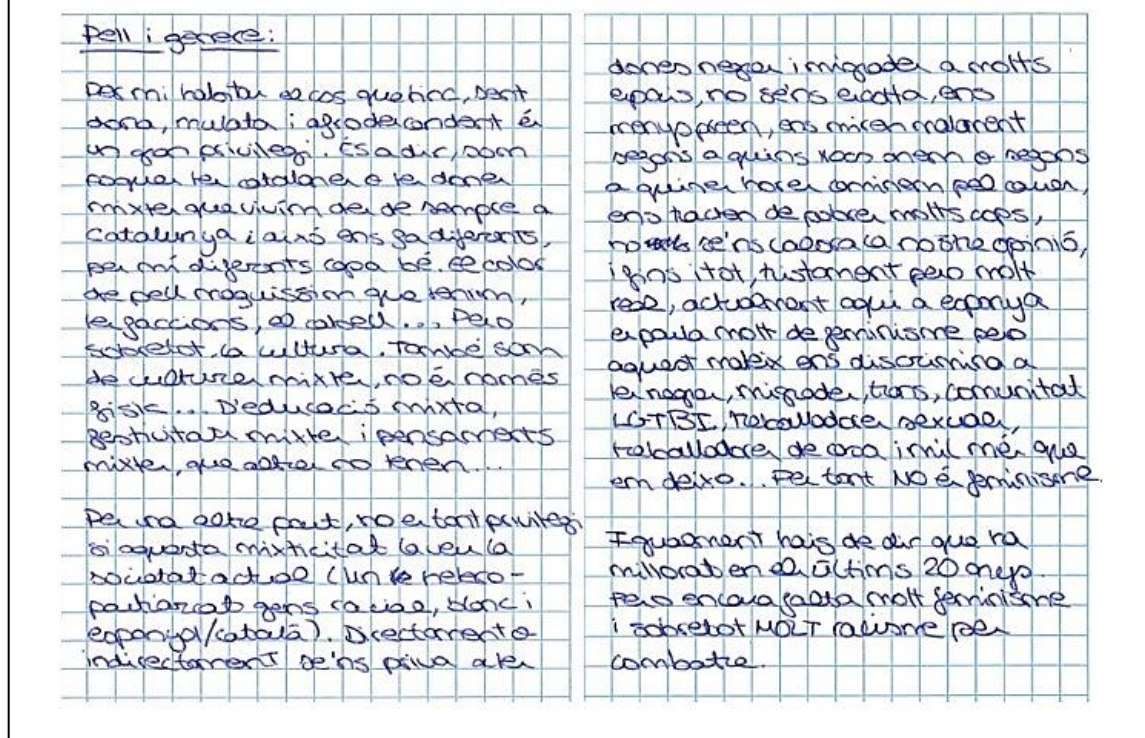 Pell i genere:
Per mi habitar el cos que tinc, sent
dona, mulata i afrodescendent és
un gran privilegi. És a dir, som
poques les catalanes o les dones
mixtes que vivim des de sempre a
Catalunya i això ens fa diferents,
per mi diferents capa bé. El color
de pell maquíssim que tenim,
les faccions, el cabell... Pero
sobretot, la cultura. També som
de cultures mixtes, no és només
físic... D'educació mixta,
festivitats mixtes i pensaments
mixtes, que altres no tenen...
Per una altre part, no es tant privilegi
si aquesta mixticitat la veu la
societat actual (un hetero-
patriarcat gens racial, blanc i
espanyol/català). Directament o
indirectament se'ns priva a les
dones negres i migrades a molts
espais, no se'ns escolta, ens
menyspreen, ens miren malament
segons a quins llocs anem o segons
a quines hores caminem pel carrer,
ens tracten de pobres molts cops,
no se'ns valora la nostre opinió,
i fins i tot, tristament pero molt
real, actualment aqui a espanya
es parla molt de feminisme pero
aquest mateix ens discrimina a
les negres, migrades, trans, comunitat
LGTBI, treballadores sexuals,
treballadores de casa i mil més que
em deixo... Per tant NO és feminisme.
Igualment haig de dir que ha
millorat en els últims 20 anys.
Pero encara falta molt feminisme
i sobretot MOLT racisme per
combatre.